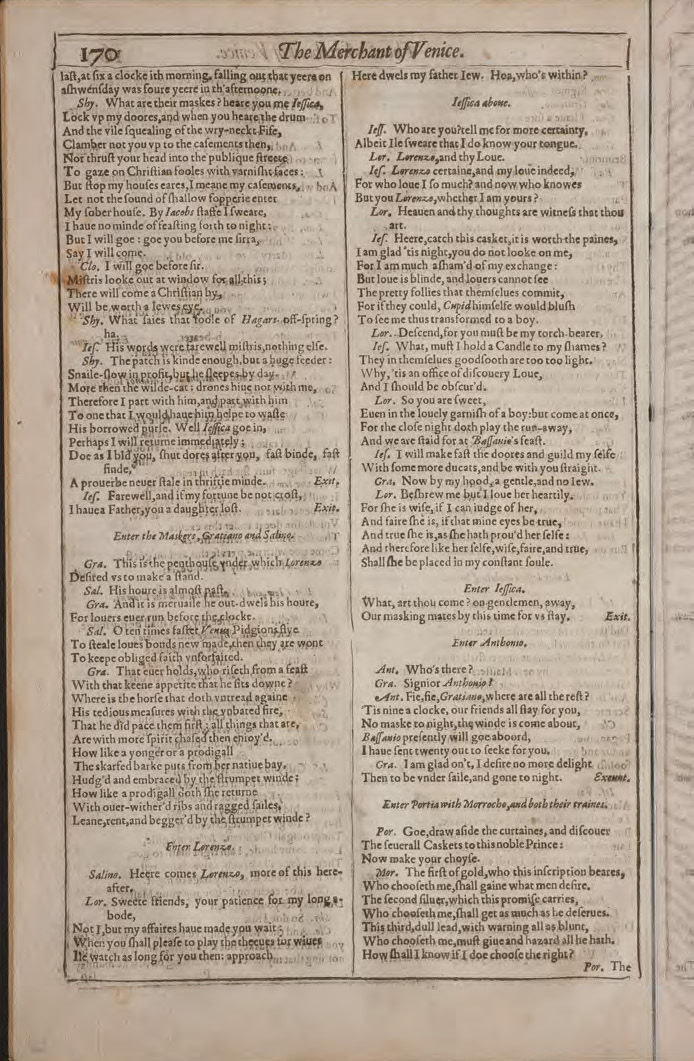 170 The Merchant of Venice.
laſt,at ſix a clocke ith morning, falling out that yeere on
aſhwenſday was foure yeere in th'afternoone.
Shy. What are their maskes? heare you me Ieſſica,
Lock vp my doores,and when you heare the drum
And the vile ſquealing of the wry-neckt Fife,
Clamber not you vp to the caſements then,
Nor thruſt your head into the publique ſtreete
To gaze on Chriſtian fooles with varniſht faces:
But ſtop my houſes eares,I meane my caſements,
Let not the ſound of ſhallow fopperie enter
My ſober houſe. By Iacobs ſtaffe I ſweare,
I haue no minde of feaſting forth to night:
But I will goe: goe you before me ſirra,
Say I will come.
Clo. I will goe before ſir.
Miſtris looke out at window for all this;
There will come a Chriſtian by,
Will be worth a Iewes eye.
Shy. What ſaies that foole of Hagars off-ſpring?
ha.
Ieſ. His words were farewell miſtris,nothing elſe.
Shy. The patch is kinde enough,but a huge feeder:
Snaile-ſlow in profit,but he ſleepes by day
More then the wilde-cat: drones hiue not with me,
Therefore I part with him,and part with him
To one that I would haue him helpe to waſte
His borrowed purſe. Well Ieſſica goe in,
Perhaps I will returne immediately;
Doe as I bid you, ſhut dores after you, faſt binde, faſt
finde,
A prouerbe neuer ſtale in thriftie minde. Exit.
Ieſ. Farewell,and if my fortune be not croſt,
I haue a Father,you a daughter loſt. Exit.
Enter the Maskers, Gratiano and Salino.
Gra. This is the penthouſe vnder which Lorenzo
Deſired vs to make a ſtand.
Sal. His houre is almoſt paſt.
Gra. And it is meruaile he out-dwels his houre,
For louers euer run before the clocke.
Sal. O ten times faſter Venus Pidgions flye
To ſteale loues bonds new made,then they are wont
To keepe obliged faith vnforfaited.
Gra. That euer holds,who riſeth from a feaſt
With that keene appetite that he ſits downe?
Where is the horſe that doth vntread againe
His tedious meaſures with the vnbated fire,
That he did pace them firſt: all things that are,
Are with more ſpirit chaſed then enioy'd.
How like a yonger or a prodigall
The skarfed barke puts from her natiue bay,
Hudg'd and embraced by the ſtrumpet winde:
How like a prodigall doth ſhe returne
With ouer-wither'd ribs and ragged ſailes,
Leane,rent,and begger'd by the ſtrumpet winde?
Enter Lorenzo.
Salino. Heere comes Lorenzo, more of this here-
after.
Lor. Sweete friends, your patience for my long a-
bode,
Not I,but my affaires haue made you wait:
When you ſhall pleaſe to play the theeues for wiues
Ile watch as long for you then: approach
Here dwels my father Iew. Hoa,who's within?
Ieſſica aboue.
Ieſſ. Who are you?tell me for more certainty,
Albeit Ile ſweare that I do know your tongue.
Lor. Lorenzo,and thy Loue.
Ieſ. Lorenzo certaine,and my loue indeed,
For who loue I ſo much? and now who knowes
But you Lorenzo,whether I am yours?
Lor. Heauen and thy thoughts are witneſs that thou
art.
Ieſ. Heere,catch this casket,it is worth the paines,
I am glad 'tis night,you do not looke on me,
For I am much aſham'd of my exchange:
But loue is blinde, and louers cannot ſee
The pretty follies that themſelues commit,
For if they could, Cupid himſelfe would bluſh
To ſee me thus transformed to a boy.
Lor. Deſcend,for you muſt be my torch-bearer,
Ieſ. What, muſt I hold a Candle to my ſhames?
They in themſelues goodſooth are too too light.
Why,'tis an office of diſcouery Loue,
And I ſhould be obſcur'd.
Lor. So you are ſweet,
Euen in the louely garniſh of a boy:but come at once,
For the cloſe night doth play the run-away,
And we are ſtaid for at Baſſanio's feaſt.
Ieſ. I will make faſt the doores and guild my ſelfe
With ſome more ducats,and be with you ſtraight.
Gra. Now by my hood, a gentle,and no Iew.
Lor. Beſhrew me but I loue her heartily.
For ſhe is wiſe, if I can iudge of her,
And faire ſhe is, if that mine eyes be true,
And true ſhe is,as ſhe hath prou'd her ſelfe:
And therefore like her ſelfe,wiſe,faire,and true,
Shall ſhe be placed in my conſtant ſoule.
Enter Ieſſica.
What, art thou come? on gentlemen, away,
Our masking mates by this time for vs ſtay. Exit.
Enter Anthonio.
Ant. Who's there?
Gra. Signior Anthonio?
Ant. Fie,fie,Gratiano,where are all the reſt?
'Tis nine a clocke, our friends all ſtay for you,
No maske to night,the winde is come about,
Baſſanio preſently will goe aboord,
I haue ſent twenty out to ſeeke for you.
Gra. I am glad on't, I deſire no more delight
Then to be vnder ſaile,and gone to night. Exeunt.
Enter Portia with Morrocho,and both their traines.
Por. Goe,draw aſide the curtaines, and diſcouer
The ſeuerall Caskets to this noble Prince:
Now make your choyſe.
Mor. The firſt of gold,who this inſcription beares,
Who chooſeth me,ſhall gaine what men deſire.
The ſecond ſiluer,which this promiſe carries,
Who chooſeth me,ſhall get as much as he deſerues.
This third,dull lead,with warning all as blunt,
Who chooſeth me,muſt giue and hazard all he hath.
How ſhall I know if I doe chooſe the right?
Por. The